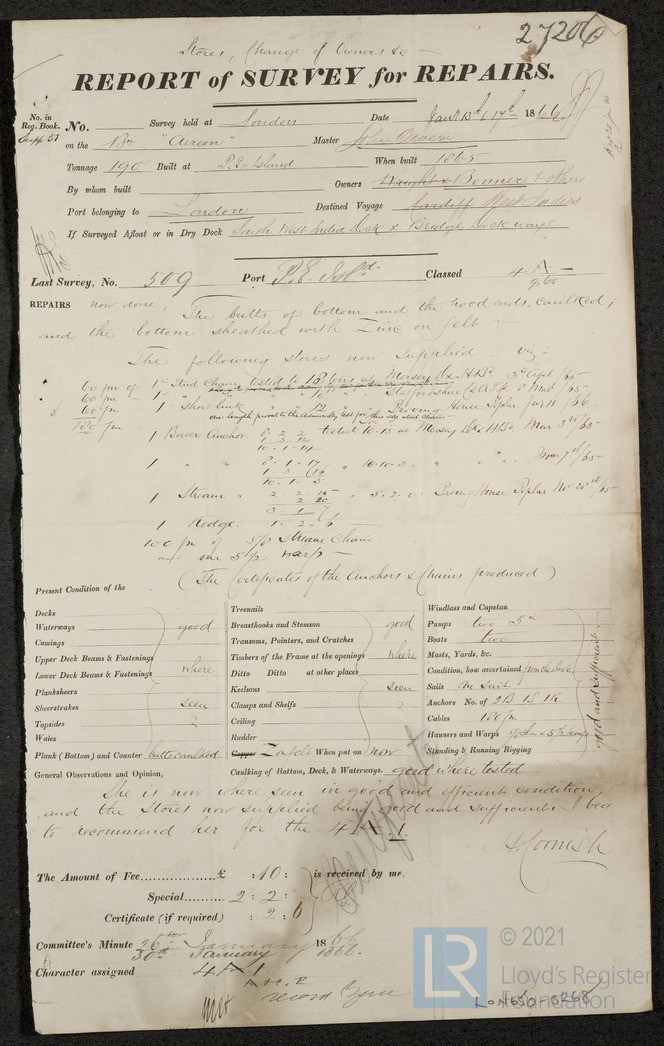 27206
Stores, Change of Owners &c —
REPORT of SURVEY for REPAIRS.
No. in Reg. Book. No. Survey held at London Date Jany 13th & 17th 1866
Supp 51 on the Bn "Aereon" Master John
Tonnage 190 Built at P.E. Island When built 1865
By whom built Owners Wright & Bonner & others
Port belonging to London Destined Voyage Cardiff West Indies
If Surveyed Afloat or in Dry Dock South West India Dock & Bridge Dock ways
Last Survey, No. 509 Port P.E. Isld. Classed 4 A
9,65
REPAIRS now done, The butts of bottom and the hood ends, caulked;
and the bottom sheathed with Zinc on felt —
The following stores now supplied — viz —
60 fm of 1 Stud Chain tested to 18 tons at Mersey Dk & HBd 3d April /65
60 fm - 1 " " " 18 " " Staffordshire 8 Mar /65
& 60 fm " 1 " Short link " " Proving House Poplar Jany 11 /66
180 fm one length proved to the Admiralty test for this size stud chain
1 Bower Anchor. 8. 2. 2 tested 10.13 at Mersey Dk & HBd Mar 3rd /65
1. 3. 12
10. 1. 14
1 " " 8. 1. 17 " 10.10.3. " " " Mar 7th /65
1. 3. 16
10. 1. 5
1 Stream " 2. 2. 15 " 5. 2. 0 Proving House Poplar Nov 28th /65
2. 20
3. 1. 7
1 Kedge. 1. 2. 6
100 fm of 5/8 Stream Chain
and one 5½ warp —
(The Certificates of the Anchors & Chains produced)
Present Condition of the
Decks
Waterways good
Comings
Upper Deck Beams & Fastenings
Lower Deck Beams & Fastenings where
Planksheers
Sheerstrakes seen
Topsides
Wales
Plank (Bottom) and Counter butts caulked
Treenails
Breasthooks and Stemson good
Transoms, Pointers, and Crutches
Timbers of the Frame at the openings where
Ditto Ditto at other places
Keelsons seen
Clamps and Shelfs
Ceiling
Rudder
Copper Zinc & felt When put on now
Caulking of Bottom, Deck, & Waterways. good where tested
Windlass and Capstan
Pumps two
Boats two
Masts, Yards, &c.
Condition, how ascertained from the deck
Sails One suit
Anchors No. of 2B 1S 1K
Cables 180 fm
Hausers and Warps
Standing & Running Rigging
good and sufficient
General Observations and Opinion,
She is now where seen in good and efficient condition,
and the Stores now supplied being good and sufficient. I beg
to recommend her for the 4 A 1.
H Cornish
The Amount of Fee £ : 10 :
Special 2 : 2 :
Certificate (if required) : 2 : 6
is received by me,
Committee's Minute 26th January 1866
30th January 1866.
Character assigned 4 A 1
A & C. P
record Zinc
LR © 2021
Lloyd's Register
Foundation
LON650-0268